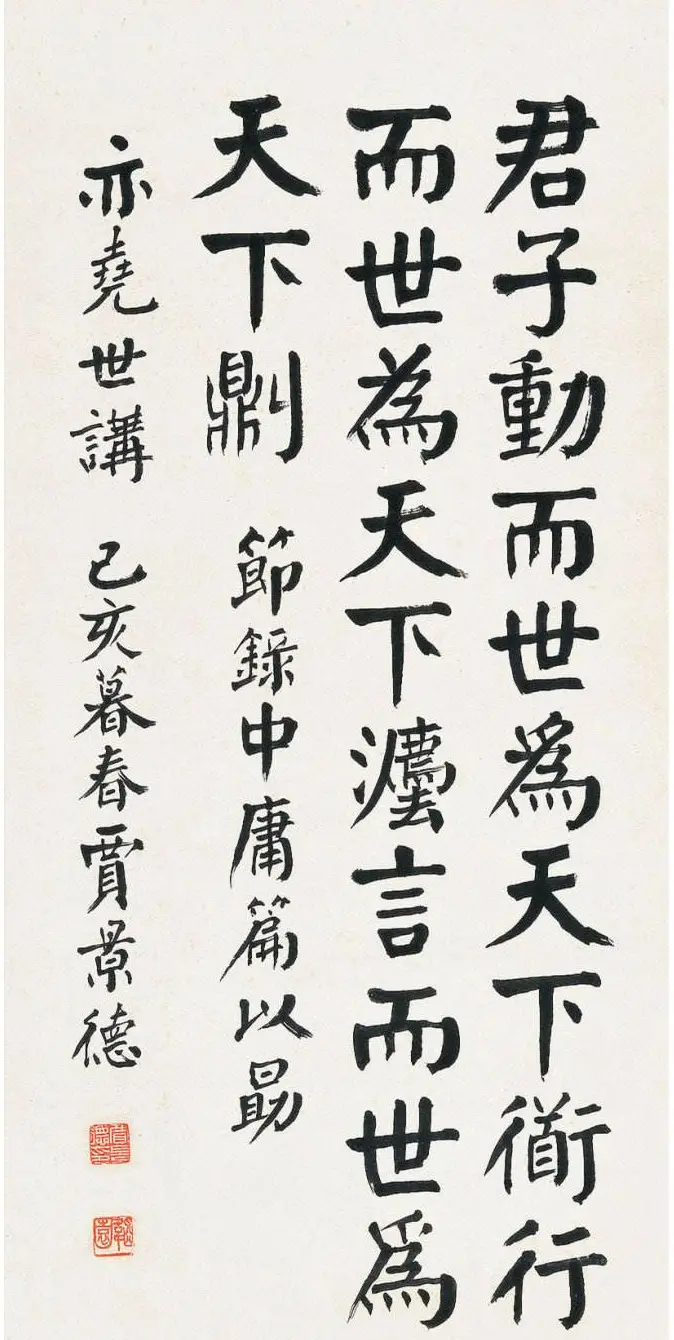 君子動而世爲天下衜行
而世為天下灋言而世爲
天下𠟭 節錄中庸篇以勗
亦堯世講 己亥暮春賈景德
賈景德印
韜園